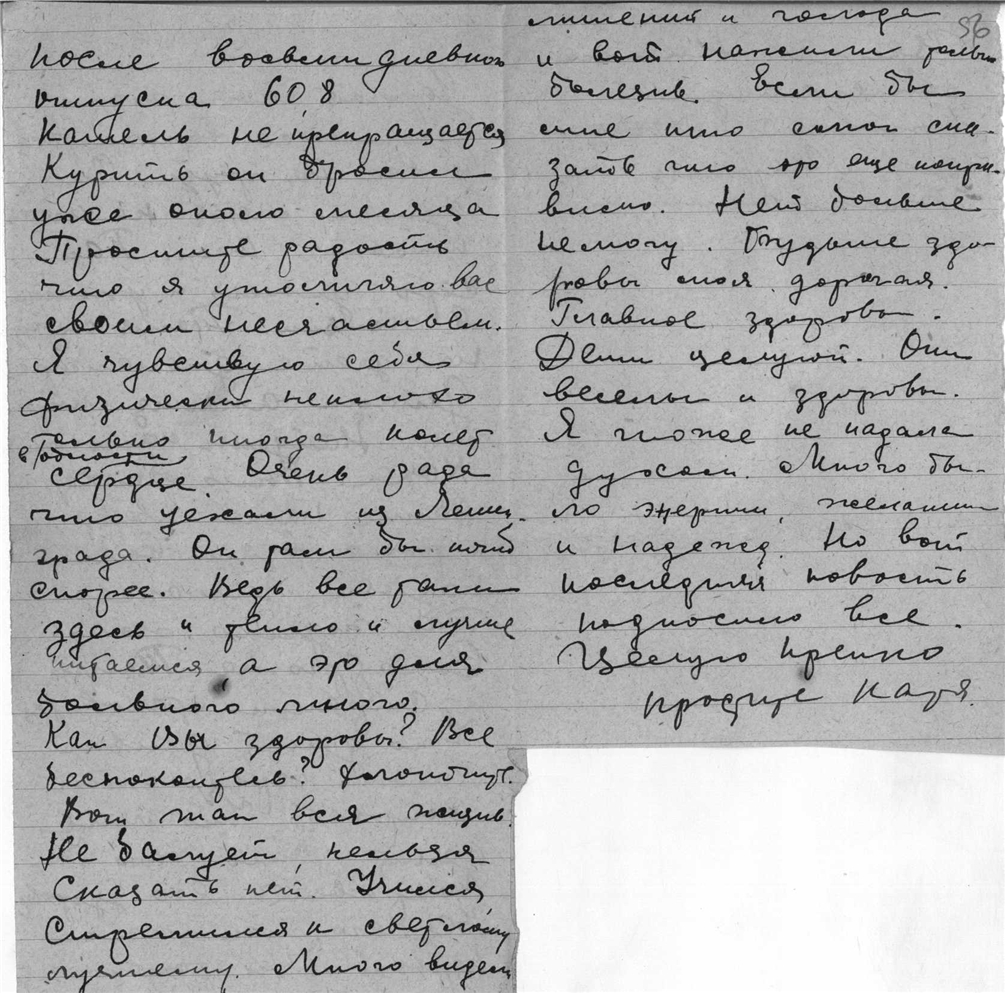 после восьмидневной
отпуска 608
Кашель не прекращается
Курить он бросил
уже около месяца
Простите радость
что я утомляю вас
своим несчастьем.
Я чувствую себя
физически неплохо
только иногда колет
в области
сердце. Очень рада
что уехали из Ленин-
града. Он там бы погиб
скорее. Ведь все таки
здесь и тепло и лучше
питаемся, а это для
больного много.
Как Вы здоровы? Все
беспокоитесь? Хлопочите.
Вот так вся жизнь.
Не балует, нельзя
Сказать нет. Учимся
Стремимся к светлому
лучшему. Много видели
лишений и голода
56
и вот нажили только
болезнь. Если бы
мне кто ска-
зать что это еще попра-
вимо. Нет больше
не могу. Будьте здо-
ровы моя дорогая.
Главное здоровы.
Дети целуют. Они
веселы и здоровы.
Я тоже не падала
духом. Много бы-
ло энергии, желания
и надежд. Но вот
последняя новость
подкосило все.
Целую крепко
простите Катя.